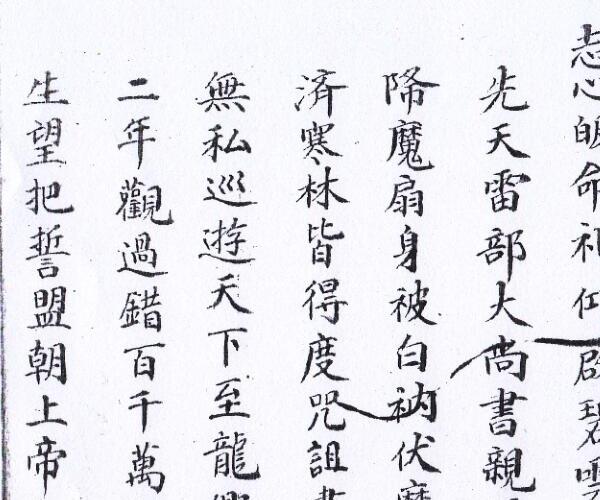 志心皈命礼
先天雷部大尚書親
降魔扇身被白衲伏魔
済寒林皆得度咒詛
無私巡遊天下至龍
二年觀過錯百千萬
生望把誓盟朝上帝